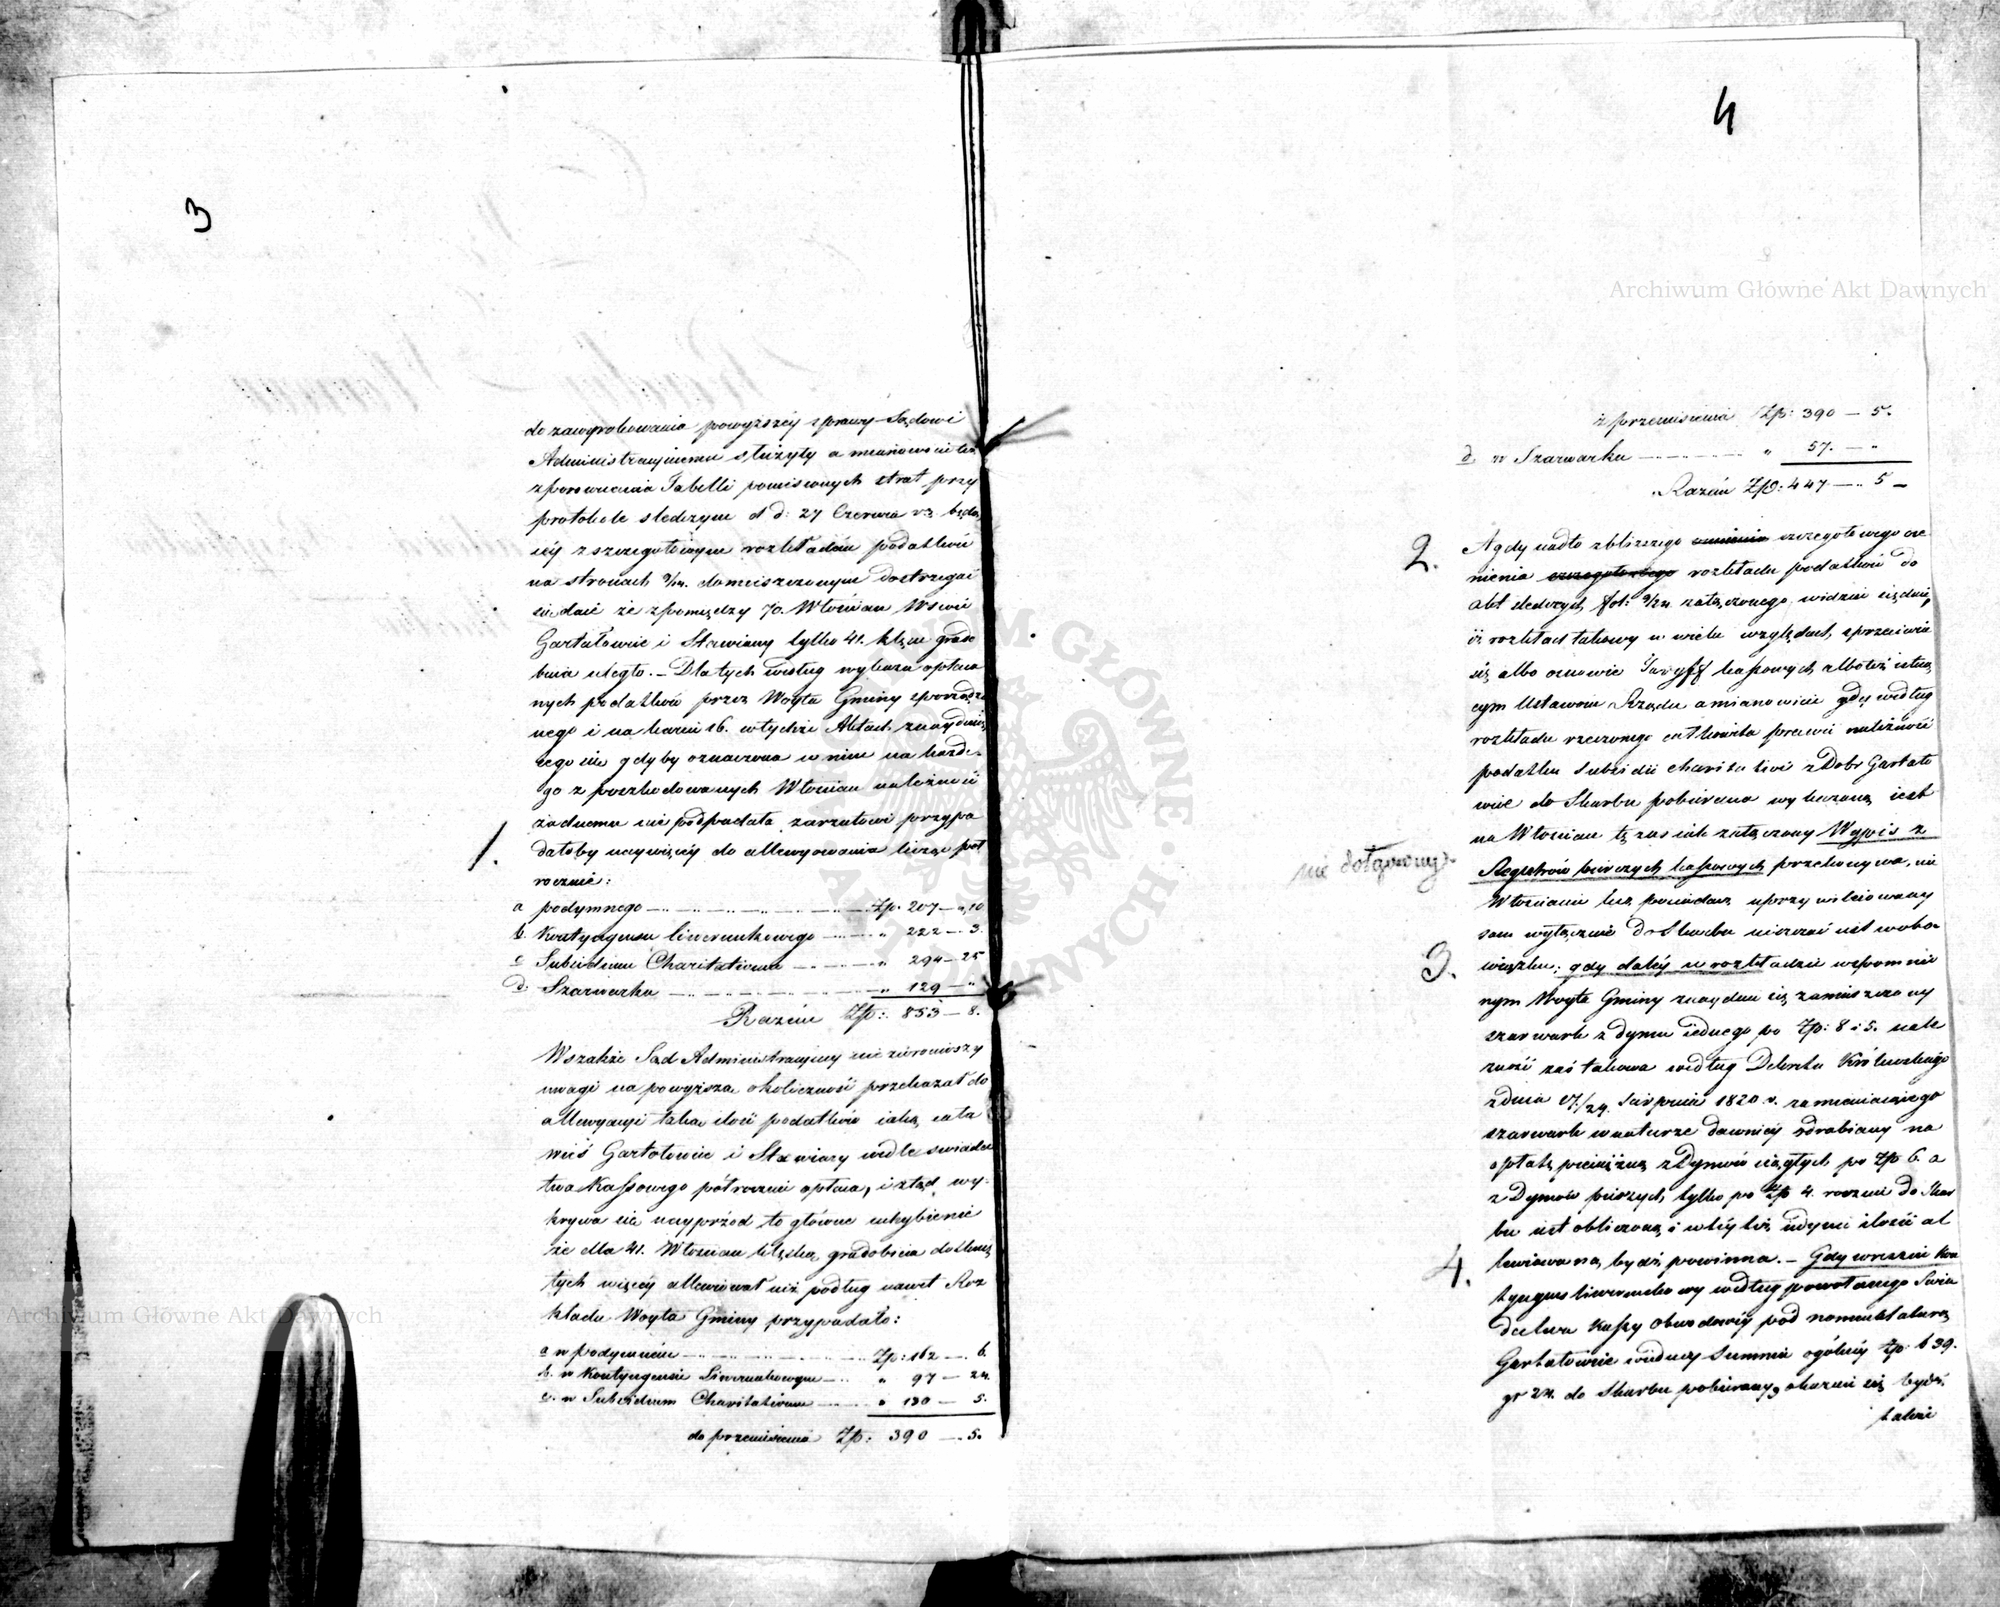 3
do zawyrokowania powyższéy sprawy Sądowi
Administracyinemu służyły a mianowicie też
zporównania Tabelli poniesionych strat przy
protokole śledczym d d: 27 Czerwca r.z. będą
céy z szczegółowym rozkładem podatków
na stronach 9/24. domieszczonym dostrzegać
się daie że zpomiędzy 70. Włościan Wsiów
Gartatowic i Stawiany tylko 41. klęsce grado
bicia uległo. – Dla tych według wykazu opłaca
nych podatków przez Woyta Gminy sporządzo
nego i na karcie 16. w tychże Aktach znayduią
cego się gdyby oznaczona w nim na każde-
go z poszkodowanych Włościan należność
żadnemu nie podpadała zarzutowi przypa
1. dałoby naywięcéy do allewyowania licząc pół
rocznie:
a podymnego Zp. 207 – „ 10
b. Kontyngensu liwerunkowego „ 222 – 3.
c Subsidium Charitativum „ 294 – 25
d. Szarwarku „ 129 – „
Razem Zp: 853 – 8.
Wszakże Sąd Administracyiny nie zwróciwszy
uwagi na powyższą okoliczność przekazał do
allewyacyi taką ilość podatków iaką cała
wieś Gartatowice i Stawiany wedle świadec
twa Kassowego półrocznie opłaca, i ztąd wy-
krywa się nayprzód to główne uchybienie
że dla 41. Włościan klęską gradobicia dotknię
tych więcéy allewiował niż podług nawet Roz
kładu Woyta Gminy przypadało:
a w podymném Zp: 162 – 6.
b. w Kontyngensie Liwerunkowym „ 97 – 24.
c. w Subsidium Charitativum „ 130 – 5.
do przeniesienia Zp: 390 – 5.
4
z przeniesienia Zp: 390 – 5.
d. w Szarwarku „ 57. – „
Razem Zp: 447 – 5 –
2. A gdy nadto zbliższego szczegółowego oce
nienia rozkładu podatków do
akt śledczych fol: 9/24 załączonego widzieć się daie,
iż rozkład takowy w wielu względach sprzeciwia
się albo osnowie Taryff kassowych albo też istnie
cym Ustawom Rządu a mianowicie gdy według
rozkładu rzeczonego całkowita prawie należność
podatku Subsidii charitativi z Dóbr Gartato
wic do Skarbu pobierana wykazaną iest
na Włościan tę zaś iak załączony Wypis z
nie dołączony Regestrów bierczych kassowych przekonywa, nie
Włościanie lecz posiadacz uprzywilejowany
sam wyłącznie do Skarbu uiszczać iest wobo-
3. wiązku; gdy daléy w rozkładzie wspomnio
nym Woyta Gminy znayduie się zamieszczony
szarwark z dymu iednego po Zp: 8 i 5. nale
żność zaś takowa według Dekretu Królewskiego
z dnia 17./24. Sierpnia 1820 r. zamieniaiącego
szarwark w naturze dawniéy odrabiany na
opłatę pieniężną z Dymów ciągłych po Zp 6. a
z Dymów pieszych tylko po Zp 4. rocznie do Skar
bu iest obliczoną i w téy też iedynie ilości al
4. lewiowaną bydź powinna. – Gdy wreszcie Kon
tyngens liwerunkowy według powołanego Swia
dectwa Kassy Obwodowéy pod nomenklaturą
Gartatowice w iednéy Summie ogólnéy Zp: 639.
gr 24. do Skarbu pobierany, okazuie się bydź
także
Archiwum Główne Akt Dawnych
Archiwum Główne Akt Dawnych